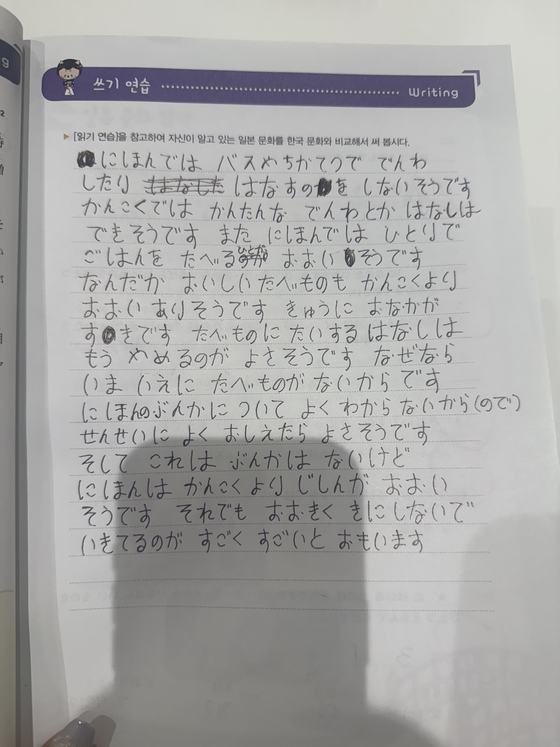 쓰기 연습 Writing
▶ [읽기 연습]을 참고하여 자신이 알고 있는 일본 문화를 한국 문화와 비교해서 써 봅시다.
にほんでは バスやちかてつで でんわ
したり はなすのを しないそうです
かんこくでは かんたんな でんわとか はなしは
できそうです また にほんでは ひとりで
ごはんを たべる ひとが おおいそうです
なんだか おいしいたべものも かんこくより
おおいありそうです きゅうに おなかが
すきです たべものに たいする はなしは
もう やめるのが よさそうです なぜなら
いま いえに たべものが ないから です
にほんのぶんかに ついて よく わから ないから(ので)
せんせいに よく おしえたら よさそうです
そして これは ぶんかは ないけど
にほんは かんこくより じしんが おおい
そうです それでも おおきく きにしないで
いきてるのが すごく すごいと おもいます